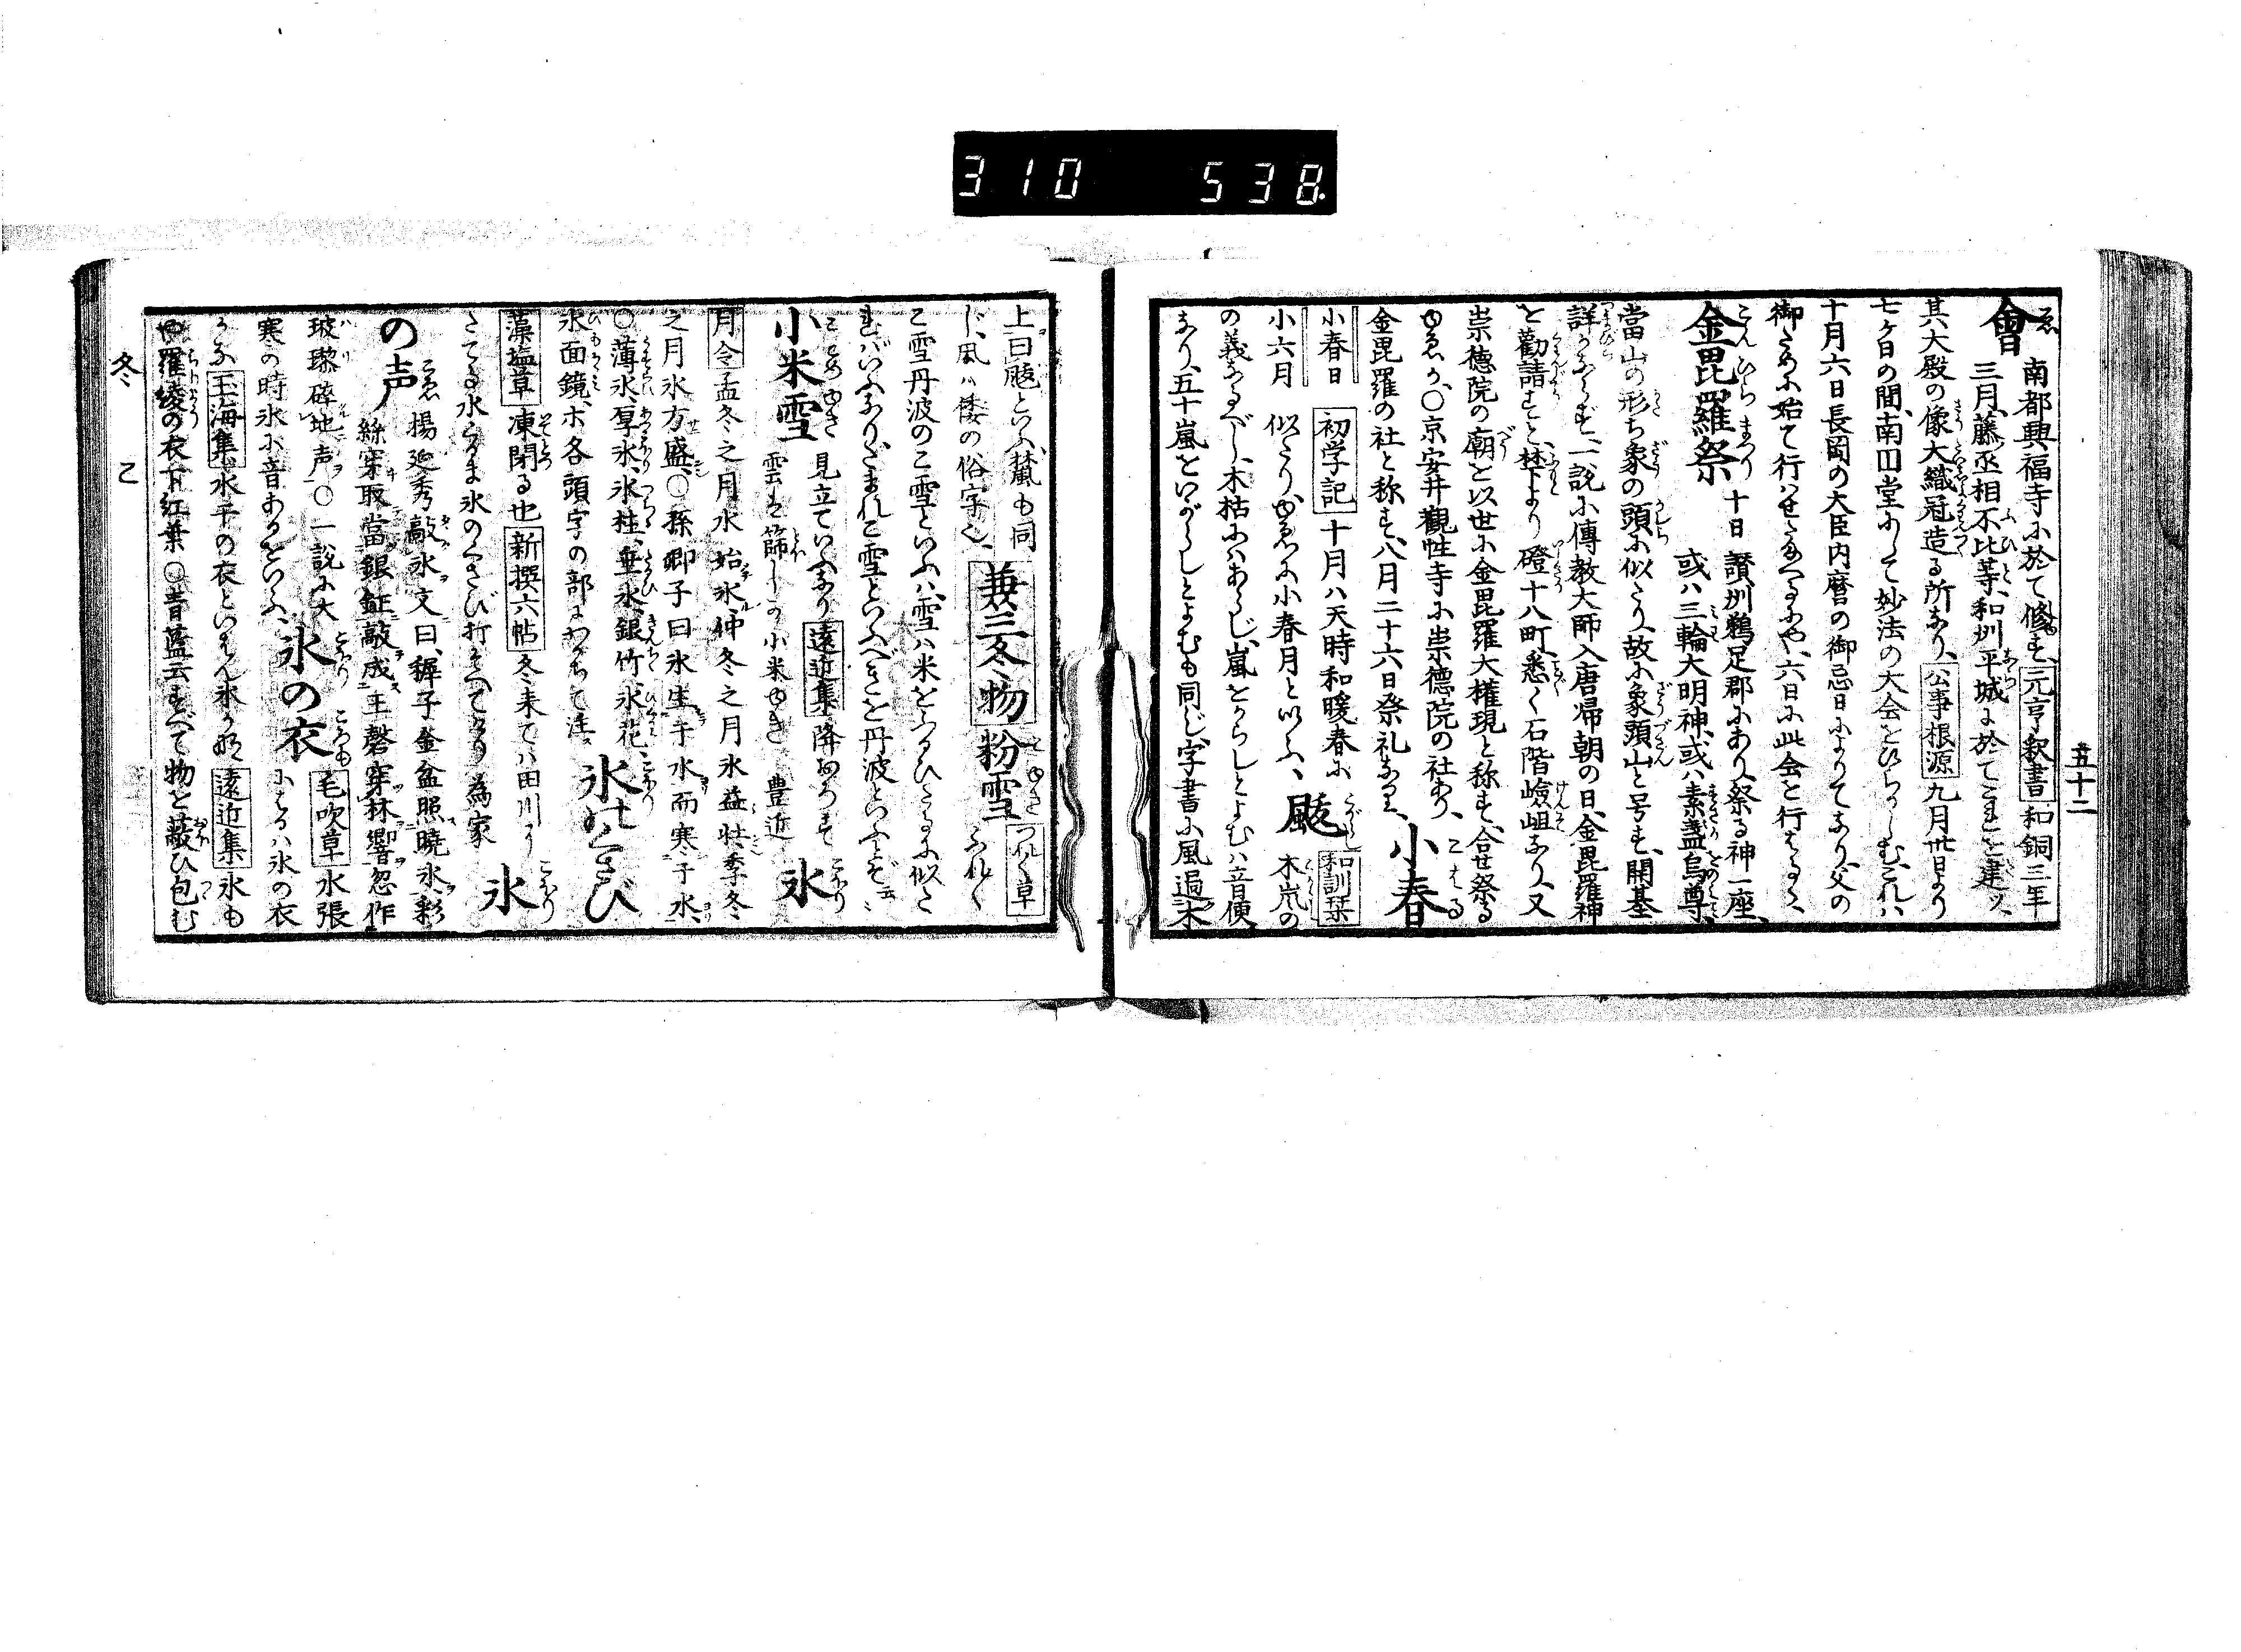 310 538
五十二
會 南都興福寺に於て修す、元亨釈書 和銅三年
三月、藤丞相不比等、和州平城に於てこれを建ッ、
其大殿の像大織冠造る所なり、公事根源 九月卅日より
七ケ日の間、南円堂にして妙法の大会をひらかしむ、これハ
十月六日長岡の大臣内麿の御忌日によりてなり、父の
御ために始て行ハせたまへるにや、六日に此会を行はるゝ、
金毘羅祭 十日 讃州鵜足郡にあり、祭る神一座、
或ハ三輪大明神、或ハ素盞烏尊、
當山の形ち象の頭に似たり、故に象頭山と号す、開基
詳かならず、一説に傳教大師入唐帰朝の日、金毘羅神
を勸請すと、埜下より磴十八町、悉く石階嶮岨なり、又
崇徳院の廟を以世に金毘羅大權現と称す、合せ祭る
ゆゑか、〇京安井觀性寺に崇徳院の社あり、
金毘羅の社と称す、八月二十六日祭礼なり、 小春
小春日 初学記 十月ハ天時和暖春に
小六月 似たり、ゆゑに小春月と以ふ、 颷 和訓栞 木嵐の
の義なるべし、木枯にハあらじ、嵐をからしとよむハ音便
なり、五十嵐をいがらしとよむも同じ、字書に風過木
上曰颷といふ、㠥も同
じ、凩ハ倭の俗字也、 兼三冬物 粉雪 つれ〳〵草 ふれ〳〵
こ雪丹波のこ雪といふハ、雪ハ米をふるひたるに似た
れバいふなり、たまれこ雪といふべきを丹波といふとぞ云々
小米雪 見立ていふなり 遠近集 降あろす
雲は篩しか小米ゆき 豊近 氷
月令 孟冬之月水始氷、仲冬之月氷益壮、季冬
之月氷方盛、〇孫卿子曰氷生于水而寒于水、
〇薄氷、厚氷、氷柱、垂氷、銀竹、氷花、
氷面鏡、ホ各頭字の部にわかちて注ス 氷せくさび
藻塩草 凍閉る也 新撰六帖 冬来てハ田川に
たてる水くるま氷のくさび打そへてけり 為家 氷
の声 揚延秀敲氷文曰、穉子金盆照曉氷、彩
絲穿取當銀鉦、敲成玉磬穿林響、忽作
玻瓈碎地声、〇一説に大
寒の時氷に音あるをいふ、 氷の衣 毛吹草 水張
にはるハ氷の衣
かな 玉海集 水干の衣といはん氷か好 遠近集 氷も
や羅綾の衣下紅葉 〇昔藍云すべて物を蔽ひ包む
冬 こ